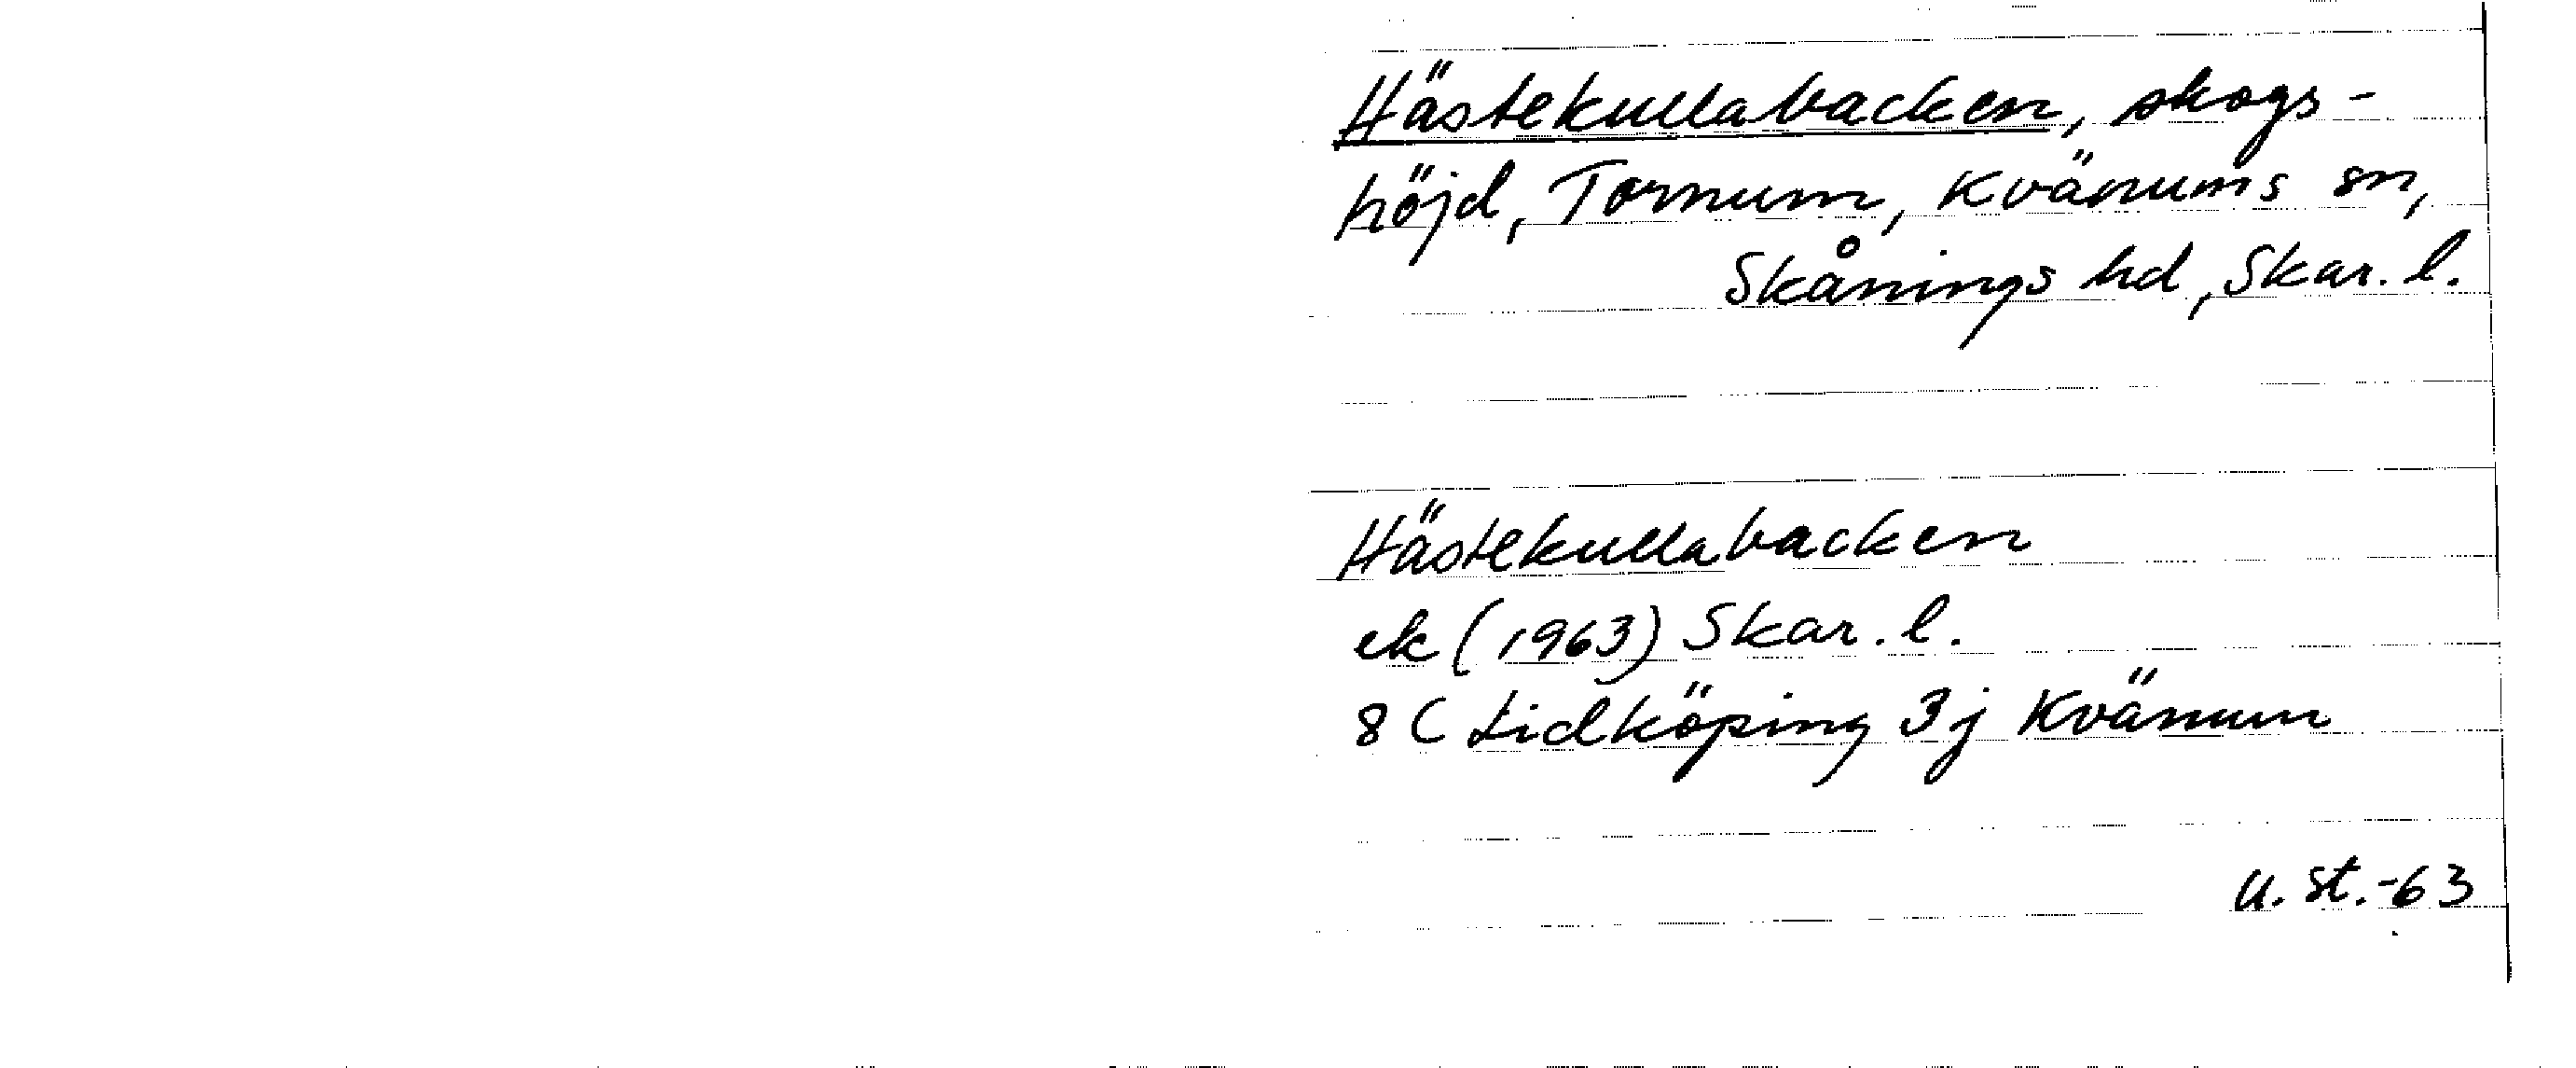 Hästekullabacken, skogs-
höjd, Tornum, Kvänums sn,
Skånings hd, Skar. l.
Hästekullabacken
ek (1963) Skar. l.
8 C Lidköping 3j Kvänum
U. St. -63